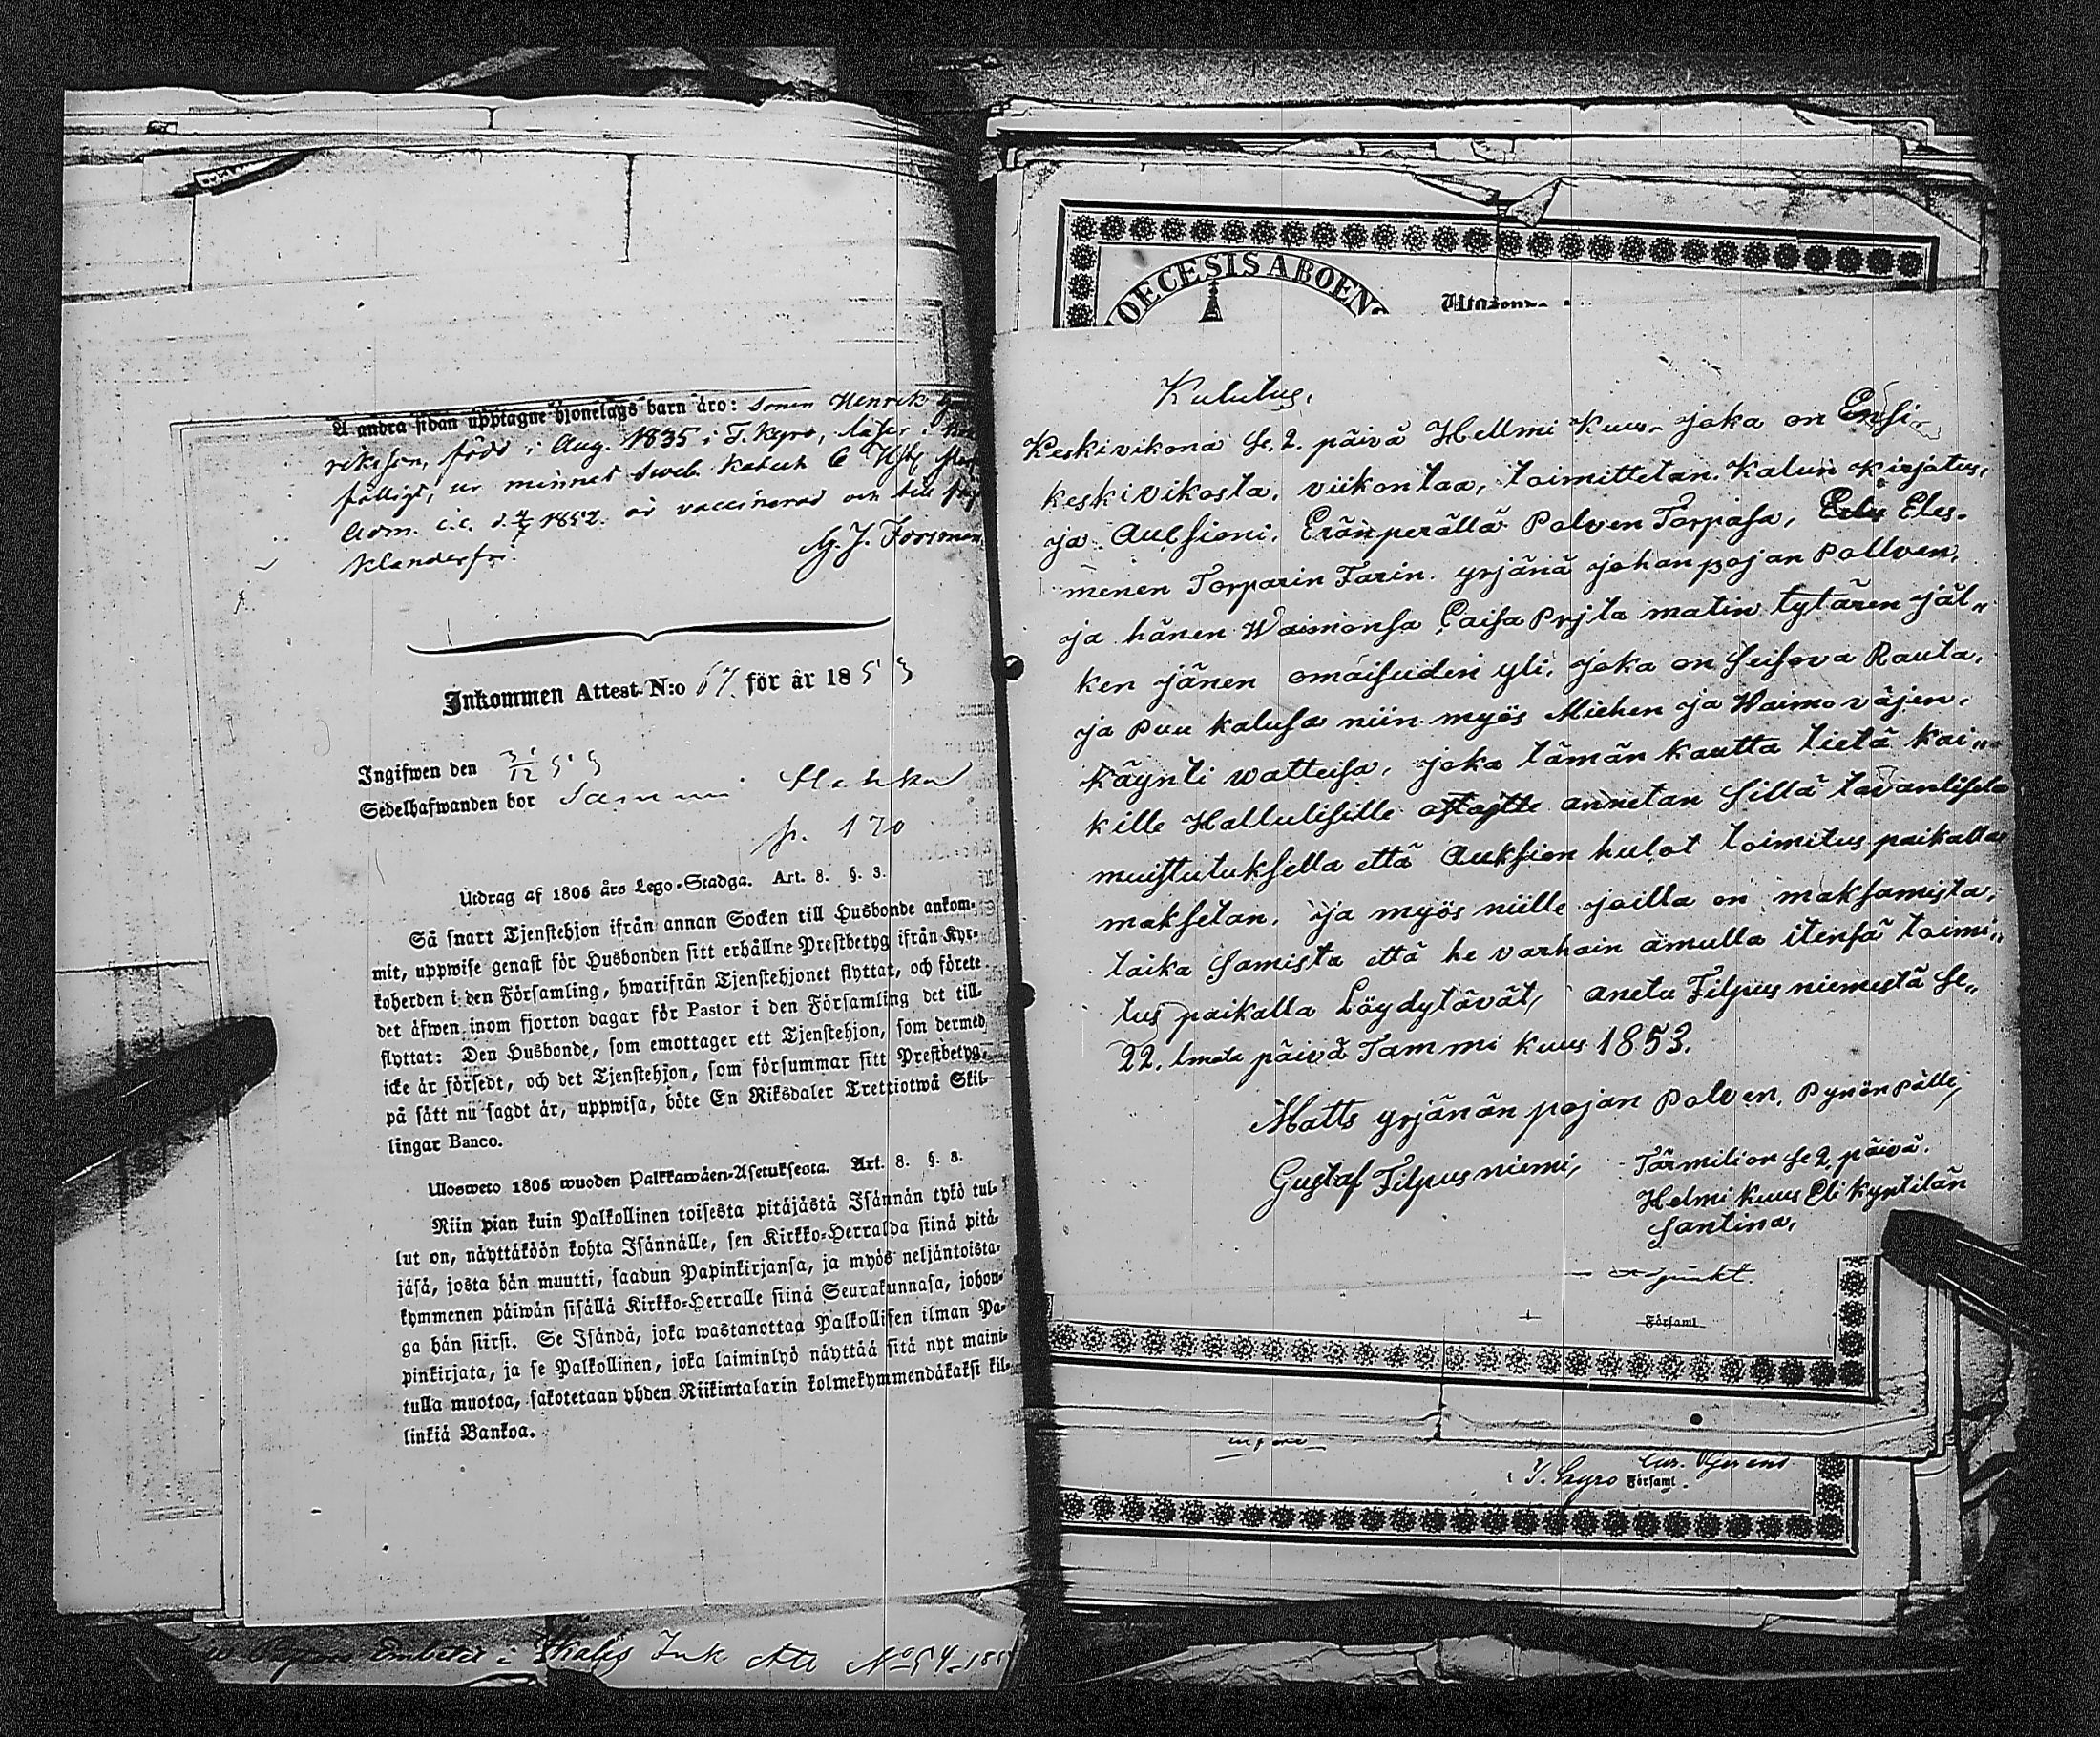 Å andra sidan upptagne hjonelags barn äro: sonen Henrik
född i Aug. 1835 i T. Kyro, läser i
fälligt, ur minnet Sweb. Katech
Adm. c.c. d. 4/7 1852. är vaccinerad och till
klanderfri.
G. J. Forsman
Inkommen Attest N:o 67 för år 1853
Ingifwen den 3/12 53
Sedelhafwanden bor Sammi
p. 120
Utdrag af 1805 års Lego-Stadga. Art. 8. §. 3.
Så snart Tjenstehjon ifrån annan Socken till Husbonde ankom-
mit, uppwise genast för Husbonden sitt erhållne Prestbetyg ifrån Kyr-
koherden i den Församling, hwarifrån Tjenstehjonet flyttat, och förete
det äfwen inom fjorton dagar för Pastor i den Församling det till-
flyttat: Den Husbonde, som emottager ett Tjenstehjon, som dermed
icke är försedt, och det Tjenstehjon, som försummar sitt Prestbetyg,
på sätt nu sagdt är, uppwisa, böte En Riksdaler Trettiotwå Skil-
lingar Banco.
Ulosweto 1805 wuoden Palkkawäen-Asetuksesta. Art. 8. §. 3.
Niin pian kuin Palkollinen toisesta pitäjästä Isännän tykö tul-
lut on, näyttäköön kohta Isännälle, sen Kirkko-Herralda siinä pitä-
jäsä, josta hän muutti, saadun Papinkirjansa, ja myös neljäntoista-
kymmenen päiwän sisällä Kirkko-Herralle siinä Seurakunnasa, johon-
ga hän siirsi. Se Isändä, joka wastanottaa Palkollisen ilman Pa-
pinkirjata, ja se Palkollinen, joka laiminlyö näyttää sitä nyt maini-
tulla muotoa, sakotetaan yhden Riikintalarin kolmekymmendäkaksi kil-
linkiä Bankoa.
i Ikalis Ink Att No 54 185
OECESIS ABOENS
Kulutus,
Keskivikona se, 2. päivä Hellmi Kuus. joka on Ensi-
keskivikosta, viikontaa, toimittetan. Kalun Kirjatus,
ja Auksioni, Eränperällä Polven Torpasa, Eles-
menen Torparin Farin. yrjänä johanpojan Pollven,
ja hänen Waimonsa Caisa Prjta matin tytären jäl„
ken jänen omaisuden yli, joka on seisova Rauta,
ja puu kalusa niin myös Miehen ja Waimo väjen,
Käynti watteisa, joka tämän kautta tietä kai„
kille Hallulisille annetan Sillä tavanlisela
muistutuksella että Auksion hulot toimitus paikalla
maksetan, ja myös niille joilla on maksamista,
taika Samista että he varhain amulla itensä toimi„
tus paikalla Löydytävät, aneta Filpus niemestä Se„
22. lmata päivä Tammi kuus 1853.
Matts yrjänän pojan Polven, Pynönpälle,
Gustaf Filpusniemi,
Tärmilion se 2, päivä.
Helmi kuus Eli Kyntilän
Santina,
Adjunkt.
Församl.
i T. Kyro Församl.